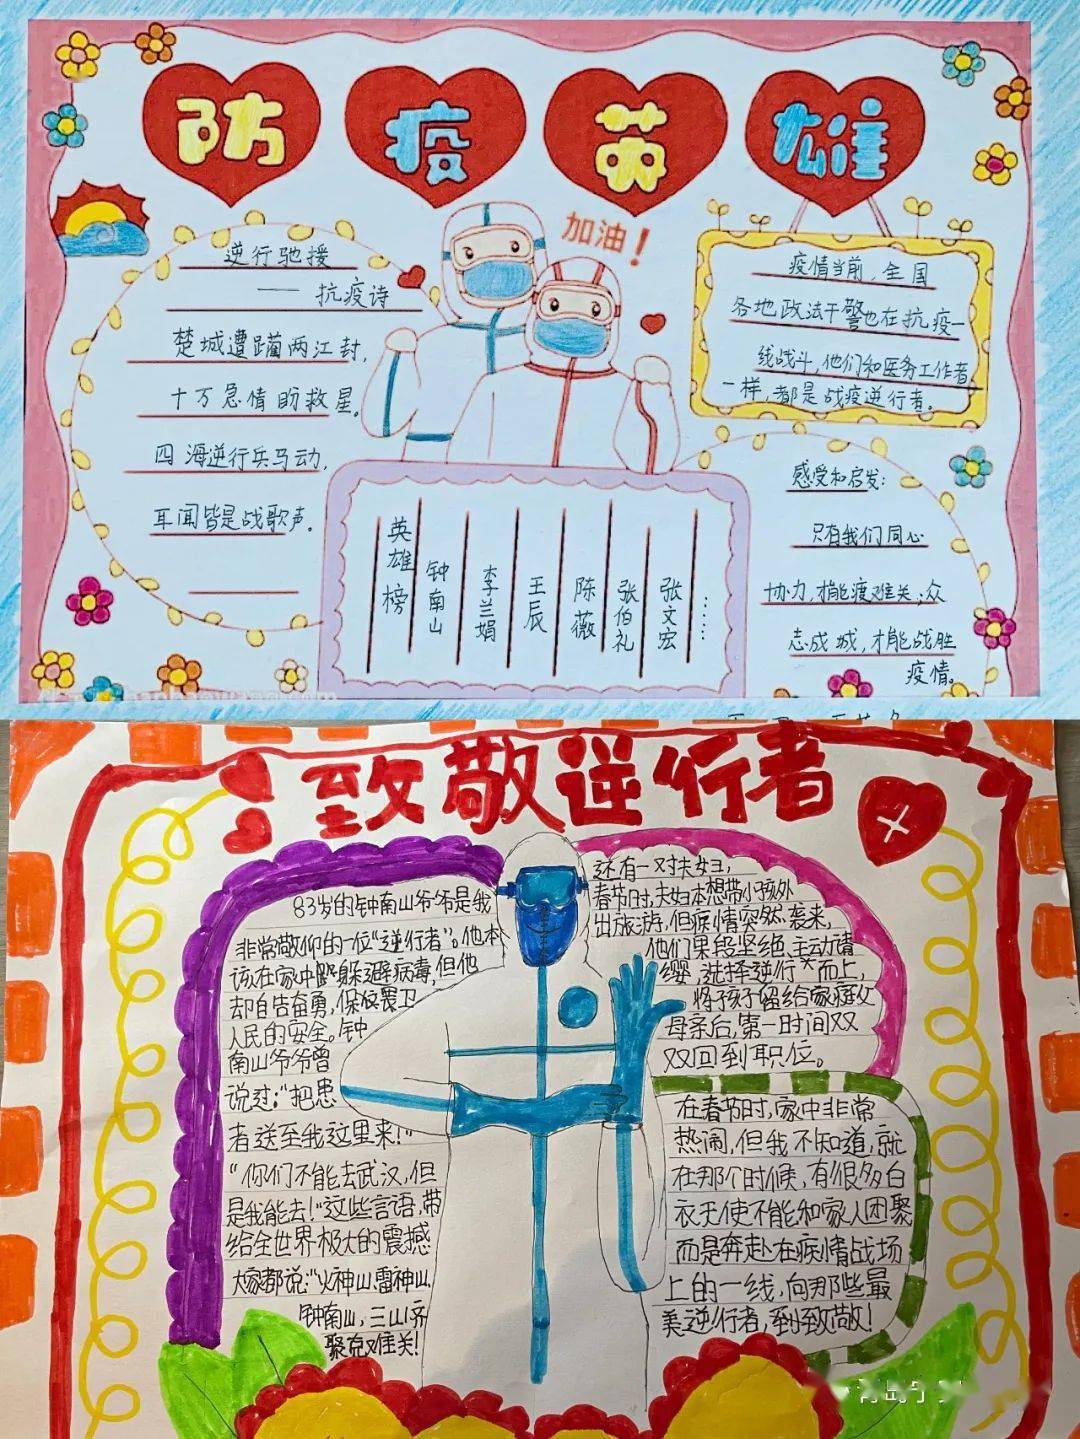 防疫英雄
加油！
逆行驰援
——抗疫诗
楚城遭蹒两江封，
十万急情盼救星。
四海逆行兵马动，
耳闻皆是战歌声。
疫情当前，全国
各地政法干警也在抗疫一
线战斗，他们和医务工作者
一样，都是战疫逆行者。
英雄榜
钟南山
李兰娟
王辰
陈薇
张伯礼
张文宏
……
感受和启发：
只有我们同心
协力，才能渡难关；众
志成城，才能战胜
疫情。
致敬逆行者
83岁的钟南山爷爷是我
非常敬仰的一位“逆行者”。他本
该在家中躲避病毒，但他
却自告奋勇，保卫
人民的安全。钟
南山爷爷曾
说过：“把患
者送至我这里来！”
“你们不能去武汉，但
是我能去！”这些言语，带
给全世界极大的震撼
大家都说：“火神山，雷神山，
钟南山，三山齐
聚克难关！
还有一对夫妇，
春节时，夫妇本想带小孩外
出旅游，但疫情突然袭来，
他们果段坚绝，主动请
缨，选择逆行而上，
将孩子留给家庭父
母亲后，第一时间双
双回到职位。
在春节时，家中非常
热闹，但我不知道，就
在那个时候，有很多白
衣天使不能和家人团聚
而是奔赴在疫情战场
上的一线，向那些最
美逆行者，致敬！